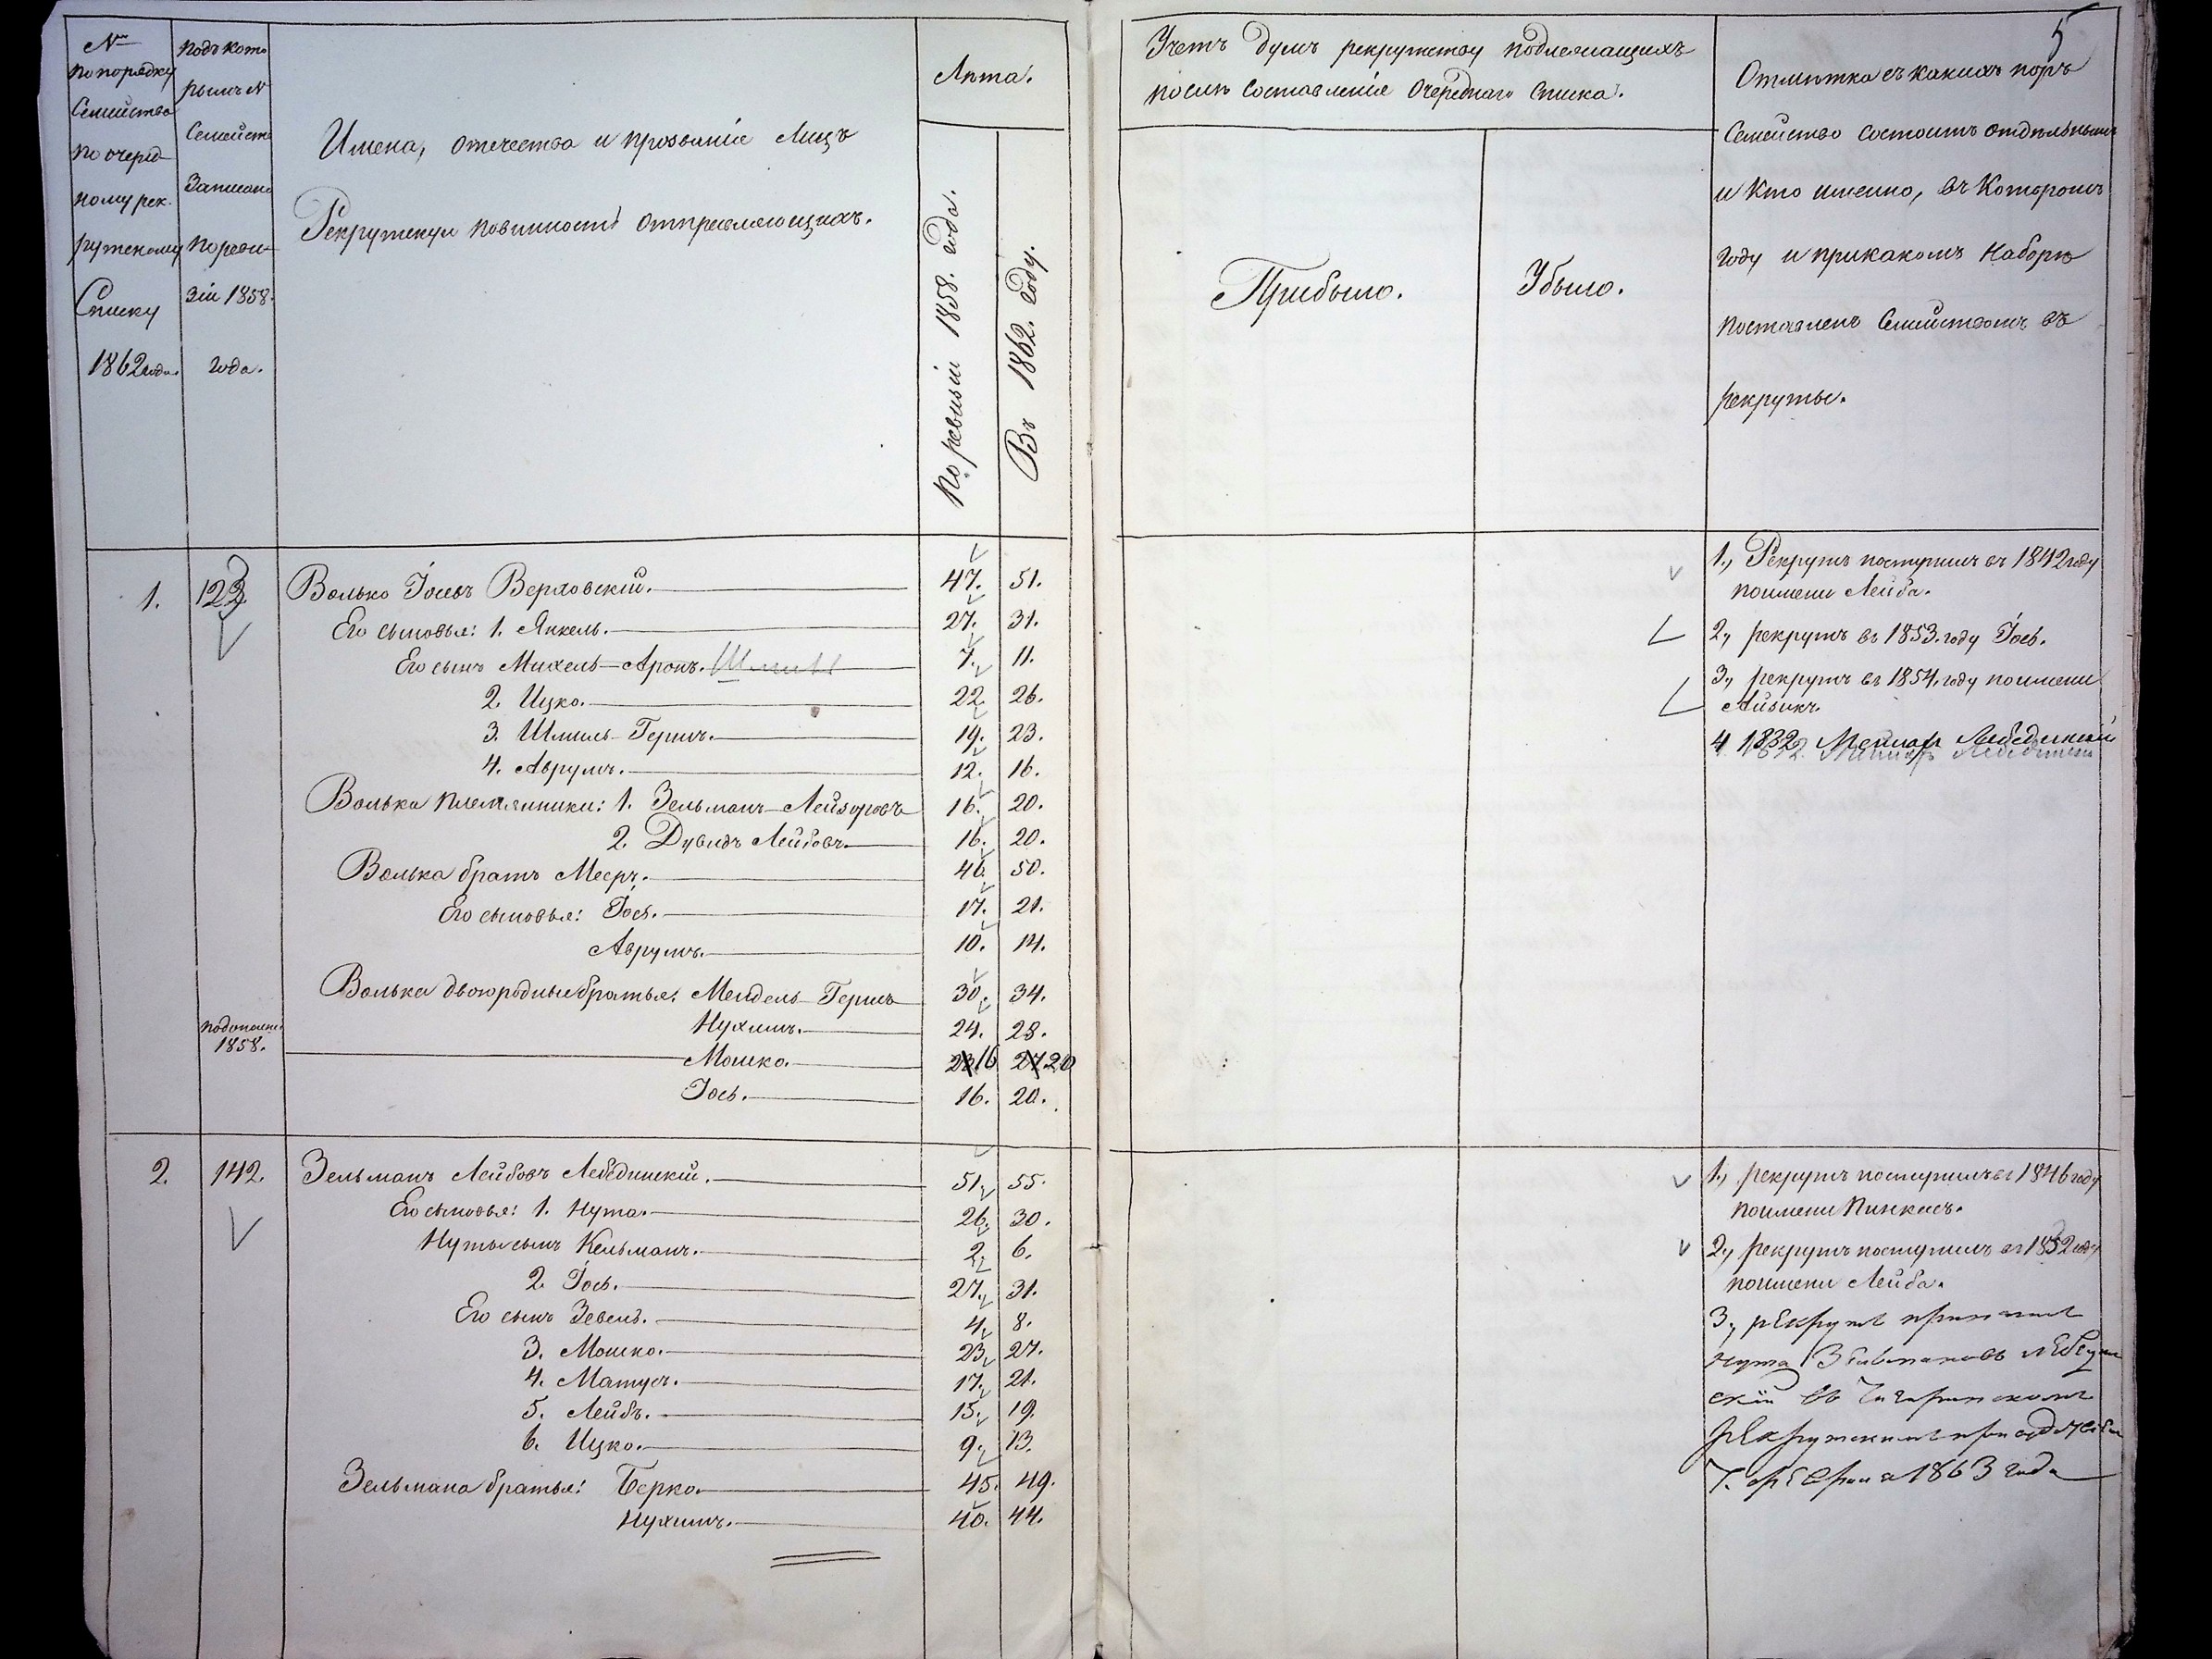 5
№
по порядку
Семейства
по очеред
ному рек
рутскому
Списку
1862 года.
Подъ кото
рымъ №
Семейст
Записано
по реви
зіи 1858.
года.
Имена, отечества и прозванiе Лицъ
Рекрутскую повинность отправляющихъ.
Лѣта.
По ревизiи 1858. года.
Въ 1862. году.
Учетъ душъ рекрутству подлежащихъ
послѣ составленiе Очереднаго Списка.
Прибыло.
Убыло.
Отмѣтка съ какихъ поръ
Семейство состоитъ отдѣльнымъ
и Кто именно, въ Которомъ
году и при какомъ Наборѣ
поставленъ Семействомъ въ
рекруты.
1. 122 Волько Іосевъ Верховскiй. 47. 51.
Его сыновья: 1. Янкель. 27. 31.
Его сынъ Михель-Аронъ. 7. 11.
2. Ицко. 22. 26.
3. Шмиль-Гершъ. 19. 23.
4. Аврумъ. 12. 16.
Волька племянники: 1. Зельманъ-Лейзоровъ 16. 20.
2. Дувидъ Лейбовъ. 16. 20.
Волька братъ Мееръ. 46. 50.
Его сыновья: Іось. 17. 21.
Аврумъ. 10. 14.
Волька двоюродные братья: Мендель-Гершъ 30. 34.
Нухимъ. 24. 28.
1858.
Мошко. 23 16 27 20
Іось. 16. 20.
1., Рекрутъ поступилъ въ 1842 году
по имени Лейба.
2., рекрутъ въ 1853. году Іось.
3., рекрутъ въ 1854. году по имени
Айзикъ.
4 1832 Лебединскiй
2. 142. Зельманъ Лейбовъ Лебединскiй. 51. 55.
Его сыновья: 1. Нута. 26. 30.
Нуты сынъ Кельманъ. 2. 6.
2. Іось. 27. 31.
Его сынъ Зевель. 4. 8.
3. Мошко. 23. 27.
4. Матусъ. 17. 21.
5. Лейбъ. 15. 19.
6. Ицко. 9. 13.
Зельмана братья: Берко. 45. 49.
Нухимъ. 40. 44.
1., рекрутъ поступилъ въ 1846 году
по имени Пинкасъ.
2., рекрутъ поступилъ въ 1852 году
по имени Лейба.
3, рекрутъ принятъ
Нута Зельмановъ Лебедин
скiй въ Чигиринскомъ
рекрутскомъ присудствiи
7. февраля 1863 года